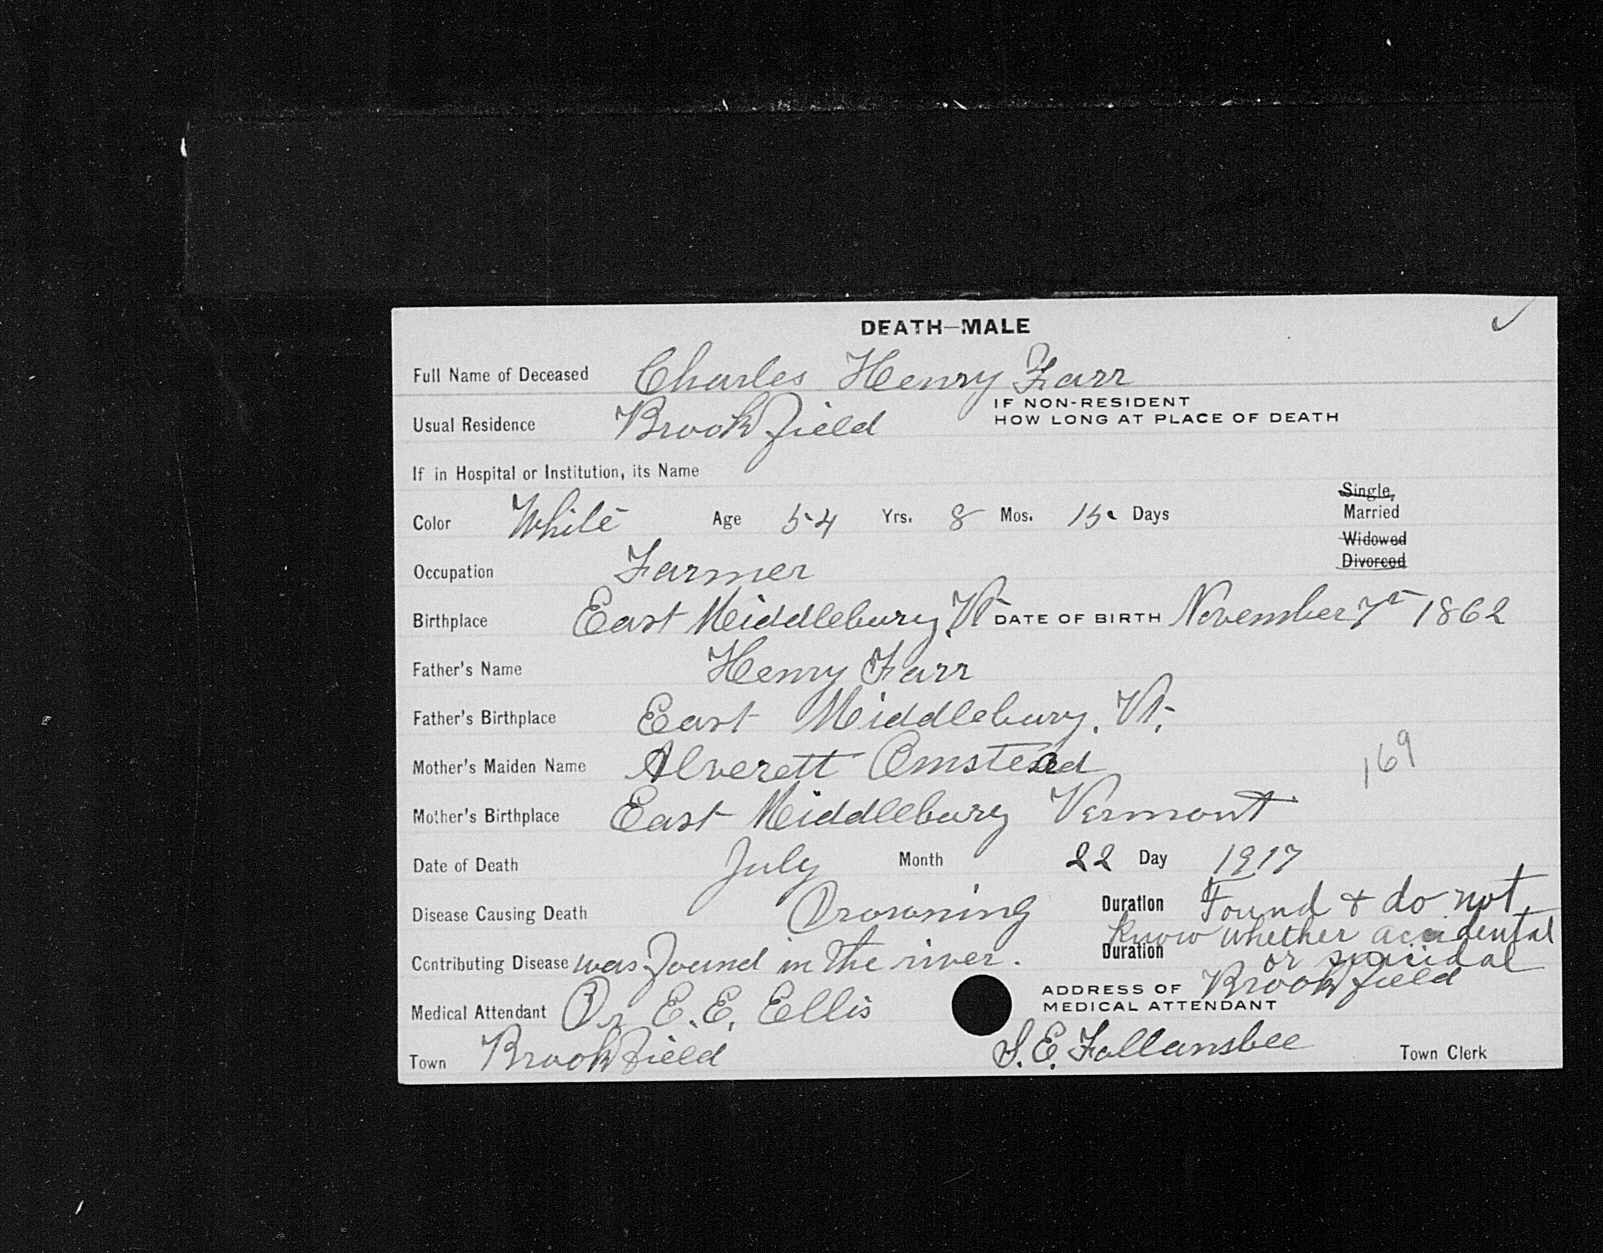 DEATH—MALE ✓
Full Name of Deceased Charles Henry Farr
Usual Residence Brookfield IF NON-RESIDENT HOW LONG AT PLACE OF DEATH
If in Hospital or Institution, its Name
Color White Age 54 Yrs. 8 Mos. 15 Days Single, Married Widowed Divorced
Occupation Farmer
Birthplace East Middlebury, Vt DATE OF BIRTH November 7th 1862
Father's Name Henry Farr
Father's Birthplace East Middlebury, Vt.
Mother's Maiden Name Alverett Omstead 169
Mother's Birthplace East Middlebury Vermont
Date of Death July Month 22 Day 1917
Disease Causing Death Drowning Duration Found & do not
know whether accidental
Contributing Disease was found in the river. Duration or suicidal
Medical Attendant Dr E. E. Ellis ADDRESS OF MEDICAL ATTENDANT Brookfield
Town Brookfield S. E. Follansbee Town Clerk